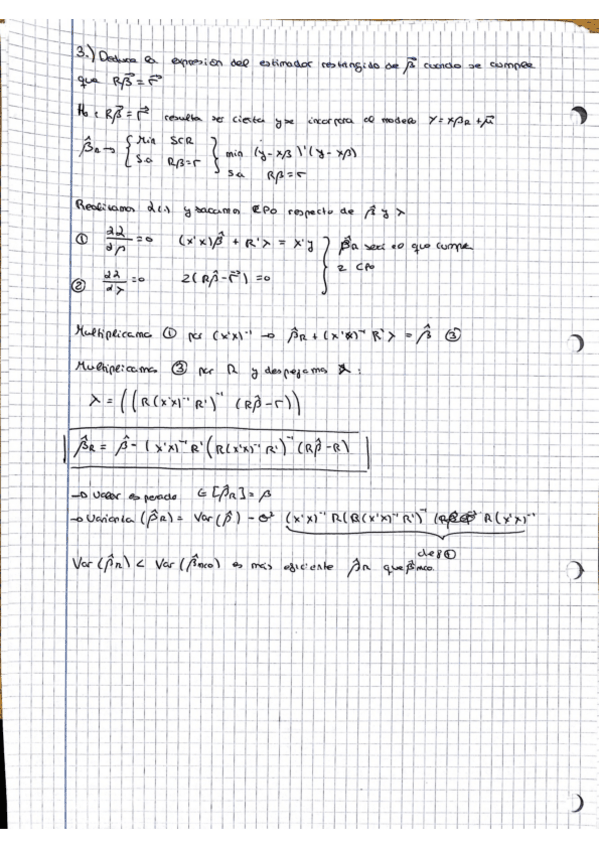 3.) Deduzca la expresión del estimador restringido de β⃗ cuando se cumple
que Rβ⃗ = r⃗
H₀: Rβ⃗ = r⃗ resulta ser cierta y se incorpora al modelo Y = xβR + μ⃗
β̂R → { Min SCR s.a Rβ=r } min (y-xβ)'(y-xβ) s.a Rβ=r
Realizamos L(.) y sacamos CPO respecto de β̂ y λ
① ∂L/∂β = 0 (x'x)β̂ + R'λ = x'y } β̂R será el que cumple
② ∂L/∂λ = 0 2(Rβ̂ - r⃗) = 0 2 CPO
Multiplicamos ① por (x'x)⁻¹ → β̂R + (x'x)⁻¹ R'λ = β̂ ③
Multiplicamos ③ por R y despejamos λ:
λ = ((R(x'x)⁻¹ R')⁻¹ (Rβ̂ - r))
β̂R = β̂ - (x'x)⁻¹ R' (R(x'x)⁻¹ R')⁻¹ (Rβ̂ - R)
→ Valor esperado E[β̂R] = β
→ Varianza (β̂R) = Var(β̂) - σ² (x'x)⁻¹ R(R(x'x)⁻¹ R')⁻¹ R(x'x)⁻¹
Var(β̂R) < Var(β̂MCO) es más eficiente β̂R que β̂MCO.